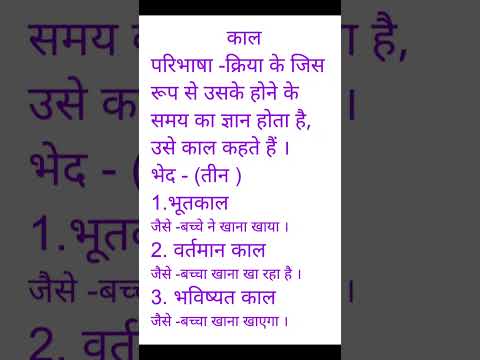 काल
परिभाषा -क्रिया के जिस
रूप से उसके होने के
समय का ज्ञान होता है,
उसे काल कहते हैं ।
भेद - (तीन )
1.भूतकाल
जैसे -बच्चे ने खाना खाया ।
2. वर्तमान काल
जैसे -बच्चा खाना खा रहा है ।
3. भविष्यत काल
जैसे -बच्चा खाना खाएगा ।